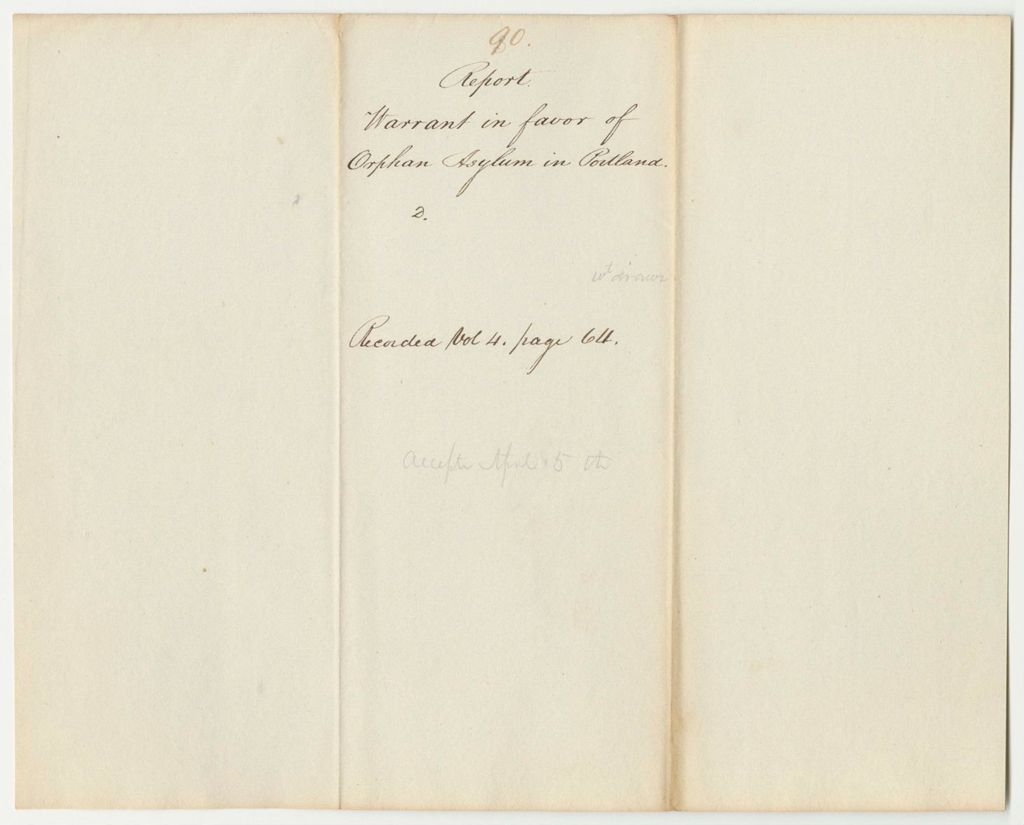 90.
Report.
Warrant in favor of
Orphan Asylum in Portland.
2.
wt drawn
Recorded Vol 4. page 64.
April 15